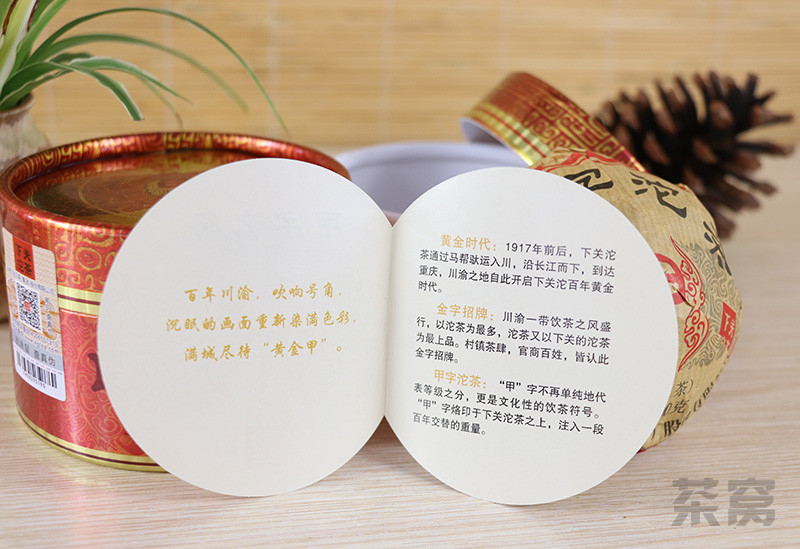 百年川渝，吹响号角，
沉眠的画面重新染满色彩，
满城尽待“黄金甲”。
黄金时代：1917年前后，下关沱
茶通过马帮驮运入川，沿长江而下，到达
重庆，川渝之地自此开启下关沱百年黄金
时代。
金字招牌：川渝一带饮茶之风盛
行，以沱茶为最多，沱茶又以下关的沱茶
为最上品。村镇茶肆，官商百姓，皆认此
金字招牌。
甲字沱茶：“甲”字不再单纯地代
表等级之分，更是文化性的饮茶符号。
“甲”字烙印于下关沱茶之上，注入一段
百年交替的重量。
沱茶
茶）
克
茶窝